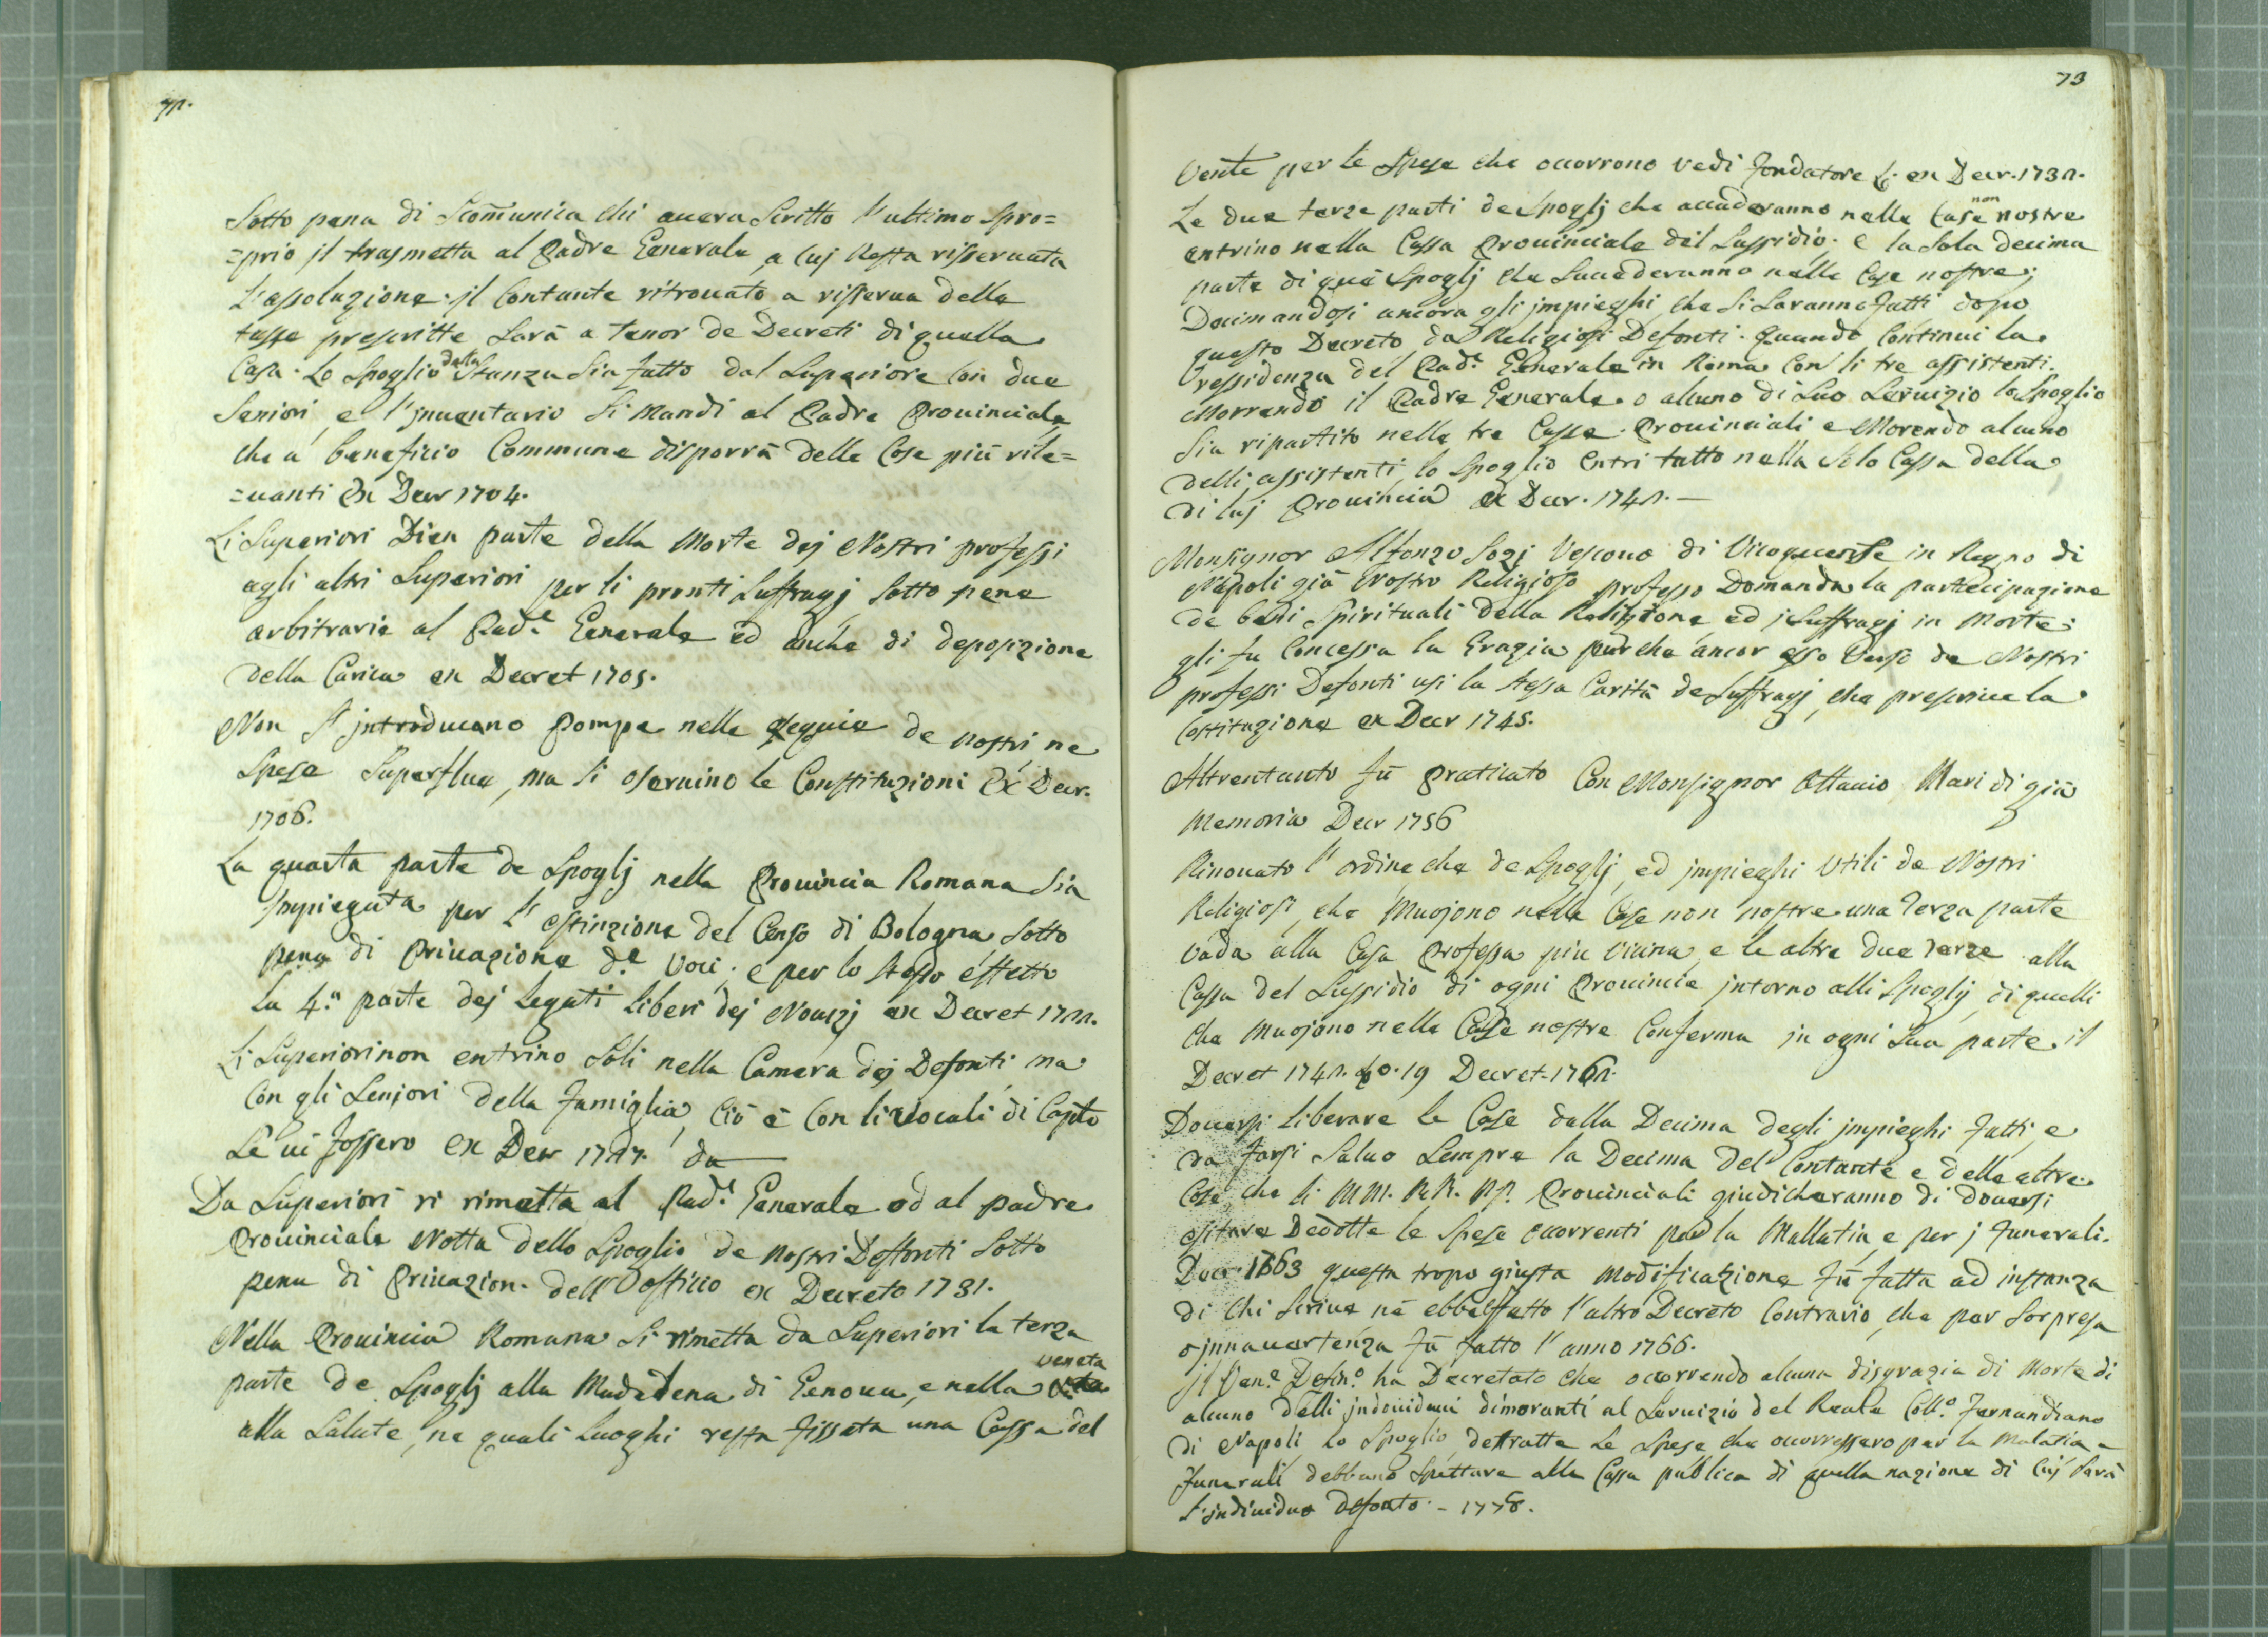 72.
Sotto pena di Scomunica chi auera Scritto l'ultimo Spro=
=prio il trasmetta al Padre Generale, a Cuj Resta risseruata
l'assoluzione. il Contante ritrouato a risserua delle
tasse prescritte Sarà a tenor de Decreti di quella
Casa. Lo Spoglio della Stanza Sia fatto dal Superiore Con due
Seniori, e l'jnuentario Si Mandi al Padre Prouinciale
che a beneficio Commune disporrà delle Cose più rile=
=uanti Ex Decr 1704.
Li Superiori Dien parte della Morte dej Nostri professi
agli altri Superiori per li pronti Suffragj Sotto pene
arbitrarie al Pad.e Generale ed anche di deposizione
della Carica ex Decret 1705.
Non S'jntroducano Pompe nelle esequie de nostri, ne
Spese Superflue, ma Si oseruino le Constituzioni Ex Decr.
1706.
La quarta parte de Spoglj nella Prouincia Romana Sia
Impiegata per l'estinzione del Censo di Bologna Sotto
pena di Priuazione d.e Voci; e per lo stesso effetto
la 4.a parte dej Legati liberi dej Nouizj ex Decret 1722.
Li Superiori non entrino Soli nella Camera dej Defonti ma
Con gli Senjori della Famiglia, Ciò è Con li Vocali di Capto
Se ui fossero ex Decr 1727. da
Da Superiori si rimetta al Pad.e Generale od al padre
Prouinciale Notta dello Spoglio de nostri Deffonti Sotto
pena di Priuazion. dell'officio ex Decreto 1731.
Nella Prouincia Romana Si rimetta da Superiori la terza
parte de Spoglj alla Madalena di Genoua, e nella veneta
alla Salute, ne quali Luoghi resta fissata una Cassa del
73
Vente per le Spese che occorrono vedi fondatore ex Decr. 1732.
Le due terze parti de Spoglj che accaderanno nelle Case non nostre
entrino nella Cassa Prouinciale del Sussidio. e la Sola decima
parte di què Spoglj che Succederanno nelle Case nostre;
Decimandosi ancora gli jmpieghi, che Si Saranno fatti dopo
questo Decreto da Religiosi Defonti. quando Continui la
ressidenza del Pad.e Generale in Roma Con li tre assistenti.
Morrendo il Padre Generale. o alcuno di Suo Seruizio lo Spoglio
Sia ripartito nelle tre Casse Prouinciali e Morendo alcuno
delli assistenti, lo Spoglio entri tutto nella Sola Cassa della
di luj Prouincia ex Decr. 1742. —
Monsignor Alfonzo Sozj Vescouo di Vicoquense in Regno di
Napoli già Nostro Religioso professo Domanda la partecipazione
de beni Spirituali della Religione ed j Suffragj in Morte.
gli fu Concessa la Grazia purche ancor esso Verso de Nostri
professi Defonti usi la stessa Carità de Suffragj, che prescriue la
Costituzione ex Decr 1745.
Altrentanto fù Praticato Con Monsignor Ottauio Mari di già
Memoria Decr 1756
Rinouato l'ordine che de Spoglj, ed jmpieghi Utili de Nostri
Religiosi, che Muojono nelle Case non nostre una Terza parte
Vada alla Casa Professa più Vicina, e le altre due Terze alla
Cassa del Sussidio di ogni Prouincia jntorno alli Spoglij di quelli
che Muojono nelle Case nostre Conferma jn ogni Sua parte il
Decret 1742. 19 Decret. 1762.
Douersi liberare le Case dalla Decima degli jmpieghi fatti, e
da farsi Saluo Sempre la Decima del Contante e delle altre
Cose che li MM. RR. PP. Prouinciali giudicheranno di douersi
esitare Dedotte le Spese occorrenti per la Mallatia e per j funerali.
Decr. 1763 questa tropo giusta Modificazione fù fatta ad instanza
di Chi Scriue nè ebbe effetto l'altro Decreto Contrario, che per Sorpresa
o jnnauertenza fù fatto l'anno 1766.
Jl Ven.e Defin.o ha Decretato che occorrendo alcuna disgrazia di Morte di
alcuno delli jndiuidui dimoranti al Seruizio del Reale Coll.o Fernandiano
di Napoli lo Spoglio, detratte le Spese che occorressero per la Malatia e
funerali debbano Spettare alla Cassa publica di quella nazione di Cuj Sarà
l'jndiuiduo defonto. - 1778.